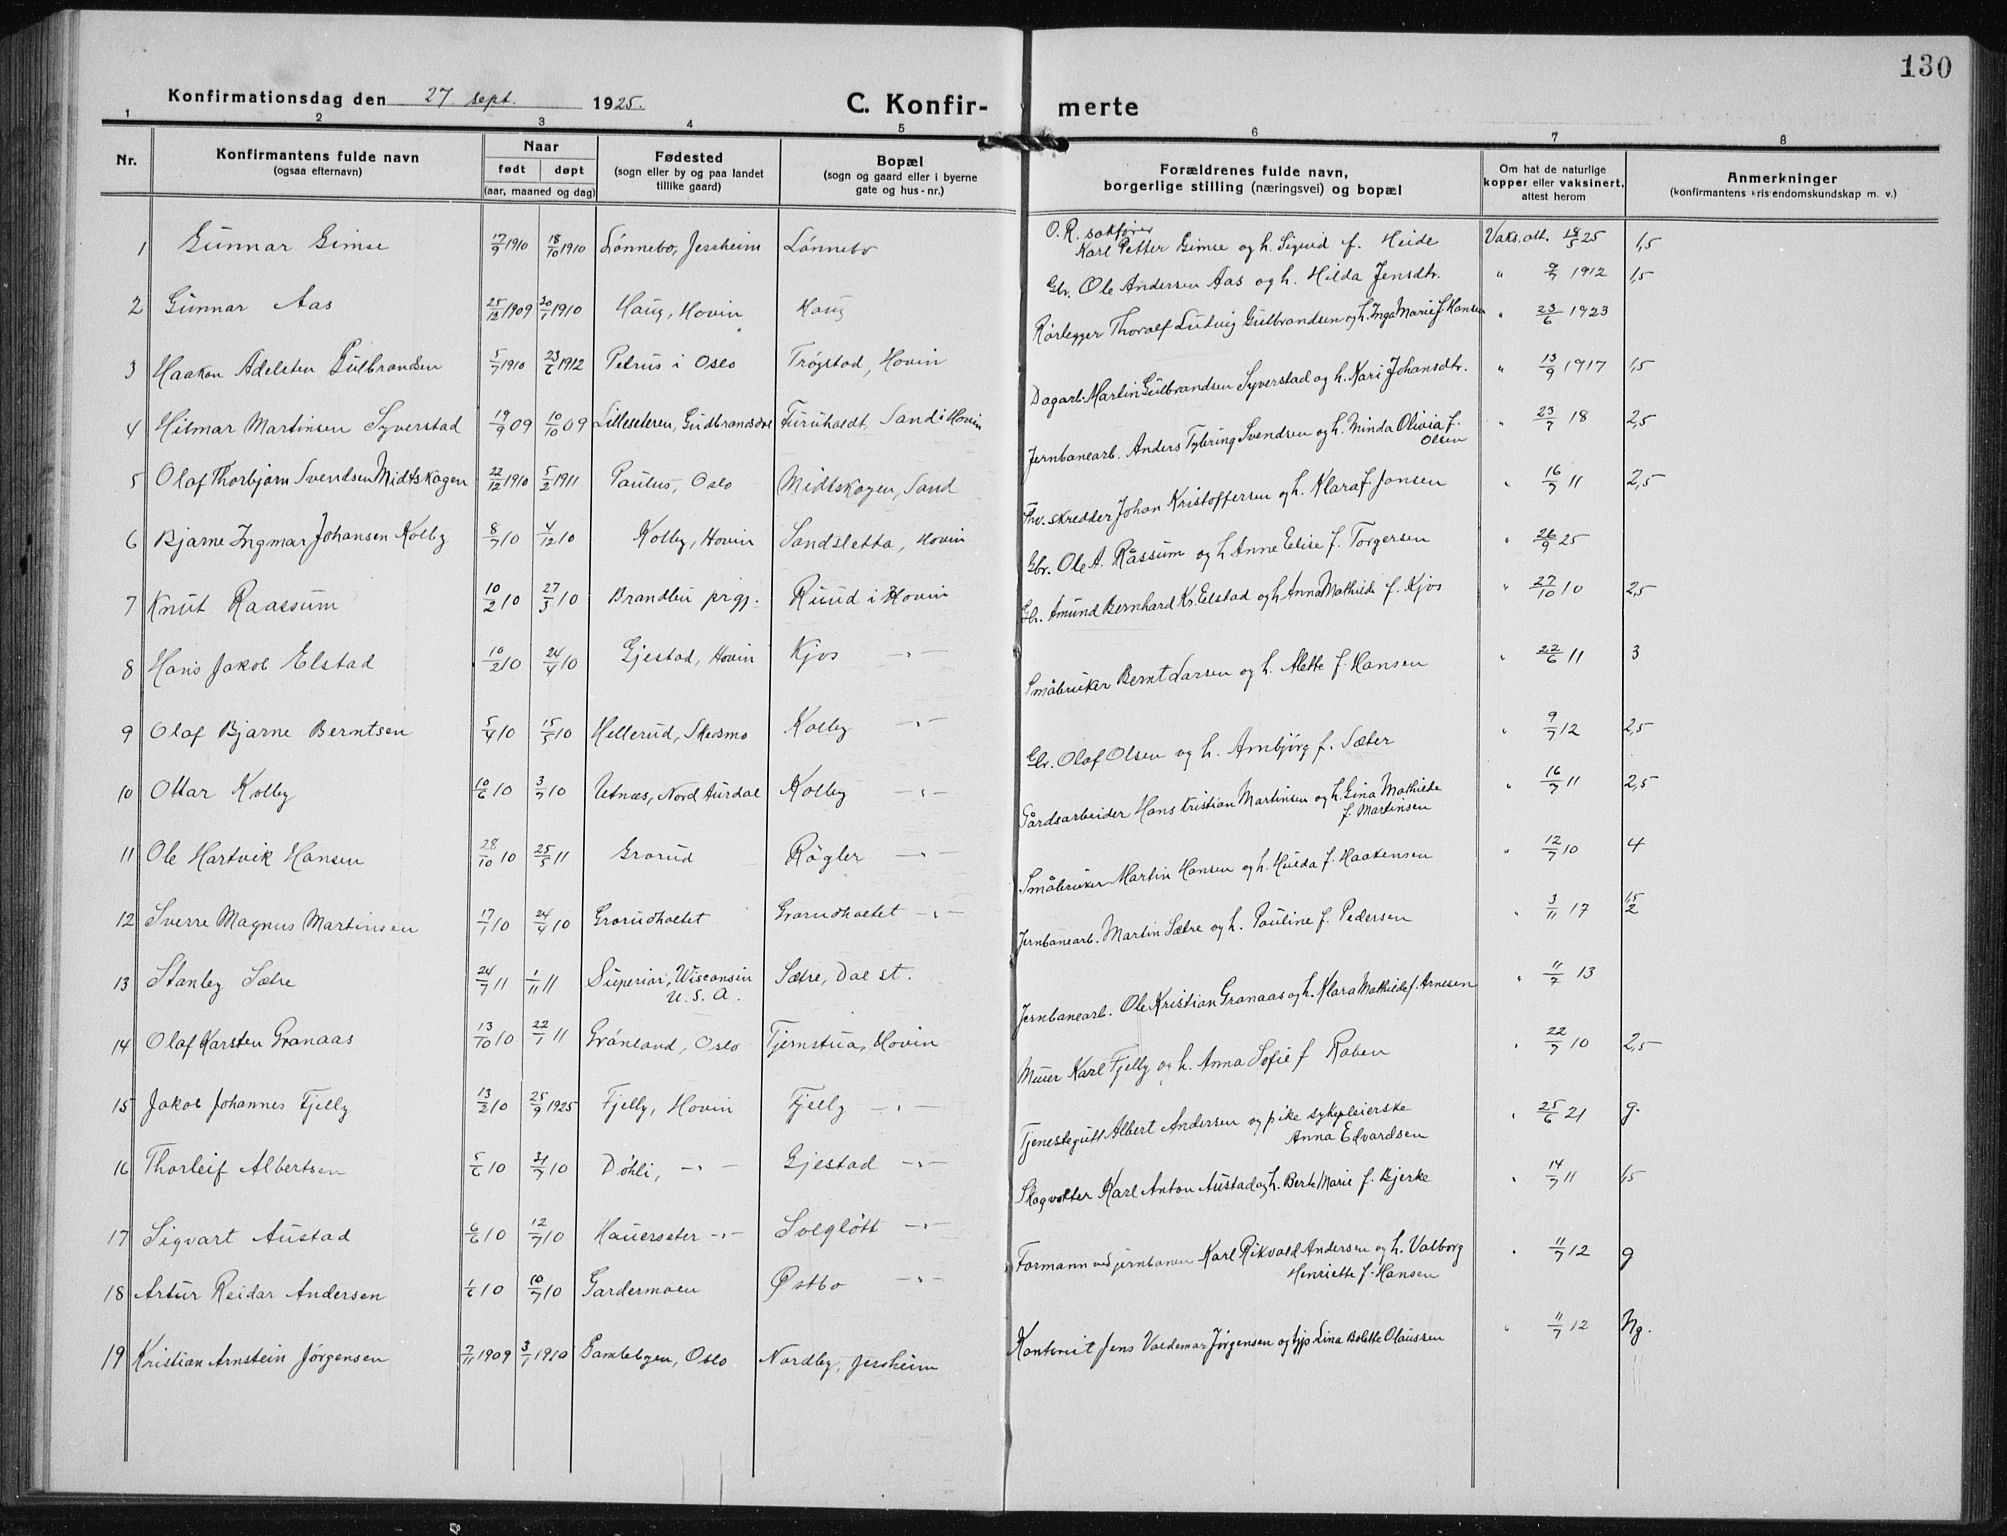 130
Konfirmationsdag den 27. sept. 1925.
C. Konfir- merte
1 2 3 4 5 6 7 8
Nr.
Konfirmantens fulde navn
(ogsaa efternavn)
Naar
født døpt
(aar, maaned og dag)
Fødested
(sogn eller by og paa landet
tillike gaard)
Bopæl
(sogn og gaard eller i byerne
gate og hus-nr.)
Forældrenes fulde navn,
borgerlige stilling (næringsvei) og bopæl
Om hat de naturlige
kopper eller vaksinert,
attest herom
Anmerkninger
(konfirmantens kristendomskundskap m. v.)
1 Gunnar Gimse 17/9 1910 18/10 1910 Lønnebo, Jessheim Lønnebo O. R. sakfører Karl Petter Gimse og h. Sigrid f. Heide Vaks.att. 18/5 25 1,5
2 Gunnar Aas 25/12 1909 30/1 1910 Haug, Hovin Haug Gbr. Ole Andersen Aas og h. Hilda Jensdtr. " 9/7 1912 1,5
3 Haakon Adelsten Gulbrandsen 5/7 1910 23/6 1912 Petrus i Oslo Trøgstad, Hovin Rørlegger Thoralf Ludvig Gulbrandsen og h. Inga Marie f. Hansen " 23/6 1923
4 Hilmar Martinsen Syverstad 19/9 09 10/10 09 Lilleseteren, Gudbrandsdal Furuholdt, Sand i Hovin Dagarb. Martin Gulbrandsen Syverstad og h. Kari Johansdtr. " 13/9 1917 1,5
5 Olaf Thorbjørn Svendsen Midtskogen 22/12 1910 5/2 1911 Paulus, Oslo Midtskogen, Sand Jernbanearb. Anders Tybring Svendsen og h. Minda Olivia f. Olsen " 23/7 18 2,5
6 Bjarne Ingmar Johansen Kolby 8/7 10 4/12 10 Kolby, Hovin Sandsletta, Hovin Thv. skredder Johan Kristoffersen og h. Klara f. Jansen " 16/7 11 2,5
7 Knut Raassum 10/2 10 27/3 10 Brandbu prgj. Ruud i Hovin Gbr. Ole A. Råssum og h. Anne Elise f. Torgersen " 26/9 25
8 Hans Jakob Elstad 10/2 10 24/4 10 Gjestad, Hovin Kjos -"- Gbr. Amund Bernhard Kr. Elstad og h. Anna Mathilde f. Kjos " 27/10 10 2,5
9 Olaf Bjarne Berntsen 5/4 10 15/5 10 Hellerud, Skedsmo Kolby -"- Småbruker Bernt Larsen og h. Alette f. Hansen " 22/6 11 3
10 Ottar Kolby 10/6 10 3/7 10 Utnæs, Nord Aurdal Kolby -"- Gbr. Olaf Olsen og h. Ambjørg f. Sæter " 9/7 12 2,5
11 Ole Hartvik Hansen 28/10 10 25/5 11 Grorud Røgler -"- Gårdsarbeider Hans Kristian Martinsen og h. Gina Mathilde f. Martinsen " 16/7 11 2,5
12 Sverre Magnus Martinsen 17/1 10 24/4 10 Grorudholtet Grorudholtet -"- Småbruker Martin Hansen og h. Hulda f. Haakensen " 12/7 10 4
13 Stanley Sætre 24/7 11 1/11 11 Superior, Wisconsin U. S. A. Sætre, Dal st. Jernbanearb. Martin Sætre og h. Pauline f. Pedersen " 3/11 17 1,5/2
14 Olaf Karsten Granaas 13/10 10 22/1 11 Grønland, Oslo Tjernstua, Hovin Jernbanearb. Ole Kristian Granaas og h. Klara Mathilde f. Arnesen " 11/7 13
15 Jakob Johannes Fjelby 13/2 10 25/9 1925 Fjelby, Hovin Fjelby -"- Murer Karl Fjelby og h. Anna Sofie f. Raben " 22/7 10 2,5
16 Thorleif Albertsen 5/6 10 31/7 10 Døhli, -"- Gjestad -"- Tjenestegutt Albert Andersen og pike sykepleierske Anna Edvardsen " 25/6 21 g.
17 Sigvart Austad 6/6 10 12/7 10 Hauerseter -"- Solgløtt -"- Skogvokter Karl Anton Austad og h. Berte Marie f. Bjerke " 14/7 11 1,5
18 Artur Reidar Andersen 1/6 10 10/7 10 Gardermoen Østbo -"- Formann ved jernbanen Karl Rikvald Andersen og h. Valborg Henriette f. Hansen " 11/7 12 g
19 Kristian Arnstein Jørgensen 2/11 1909 3/1 1910 Gamlebyen, Oslo Nordby, Jessheim Kontorist Jens Valdemar Jørgensen og hjp Lina Bolette Olaussen " 11/7 12 Ng.